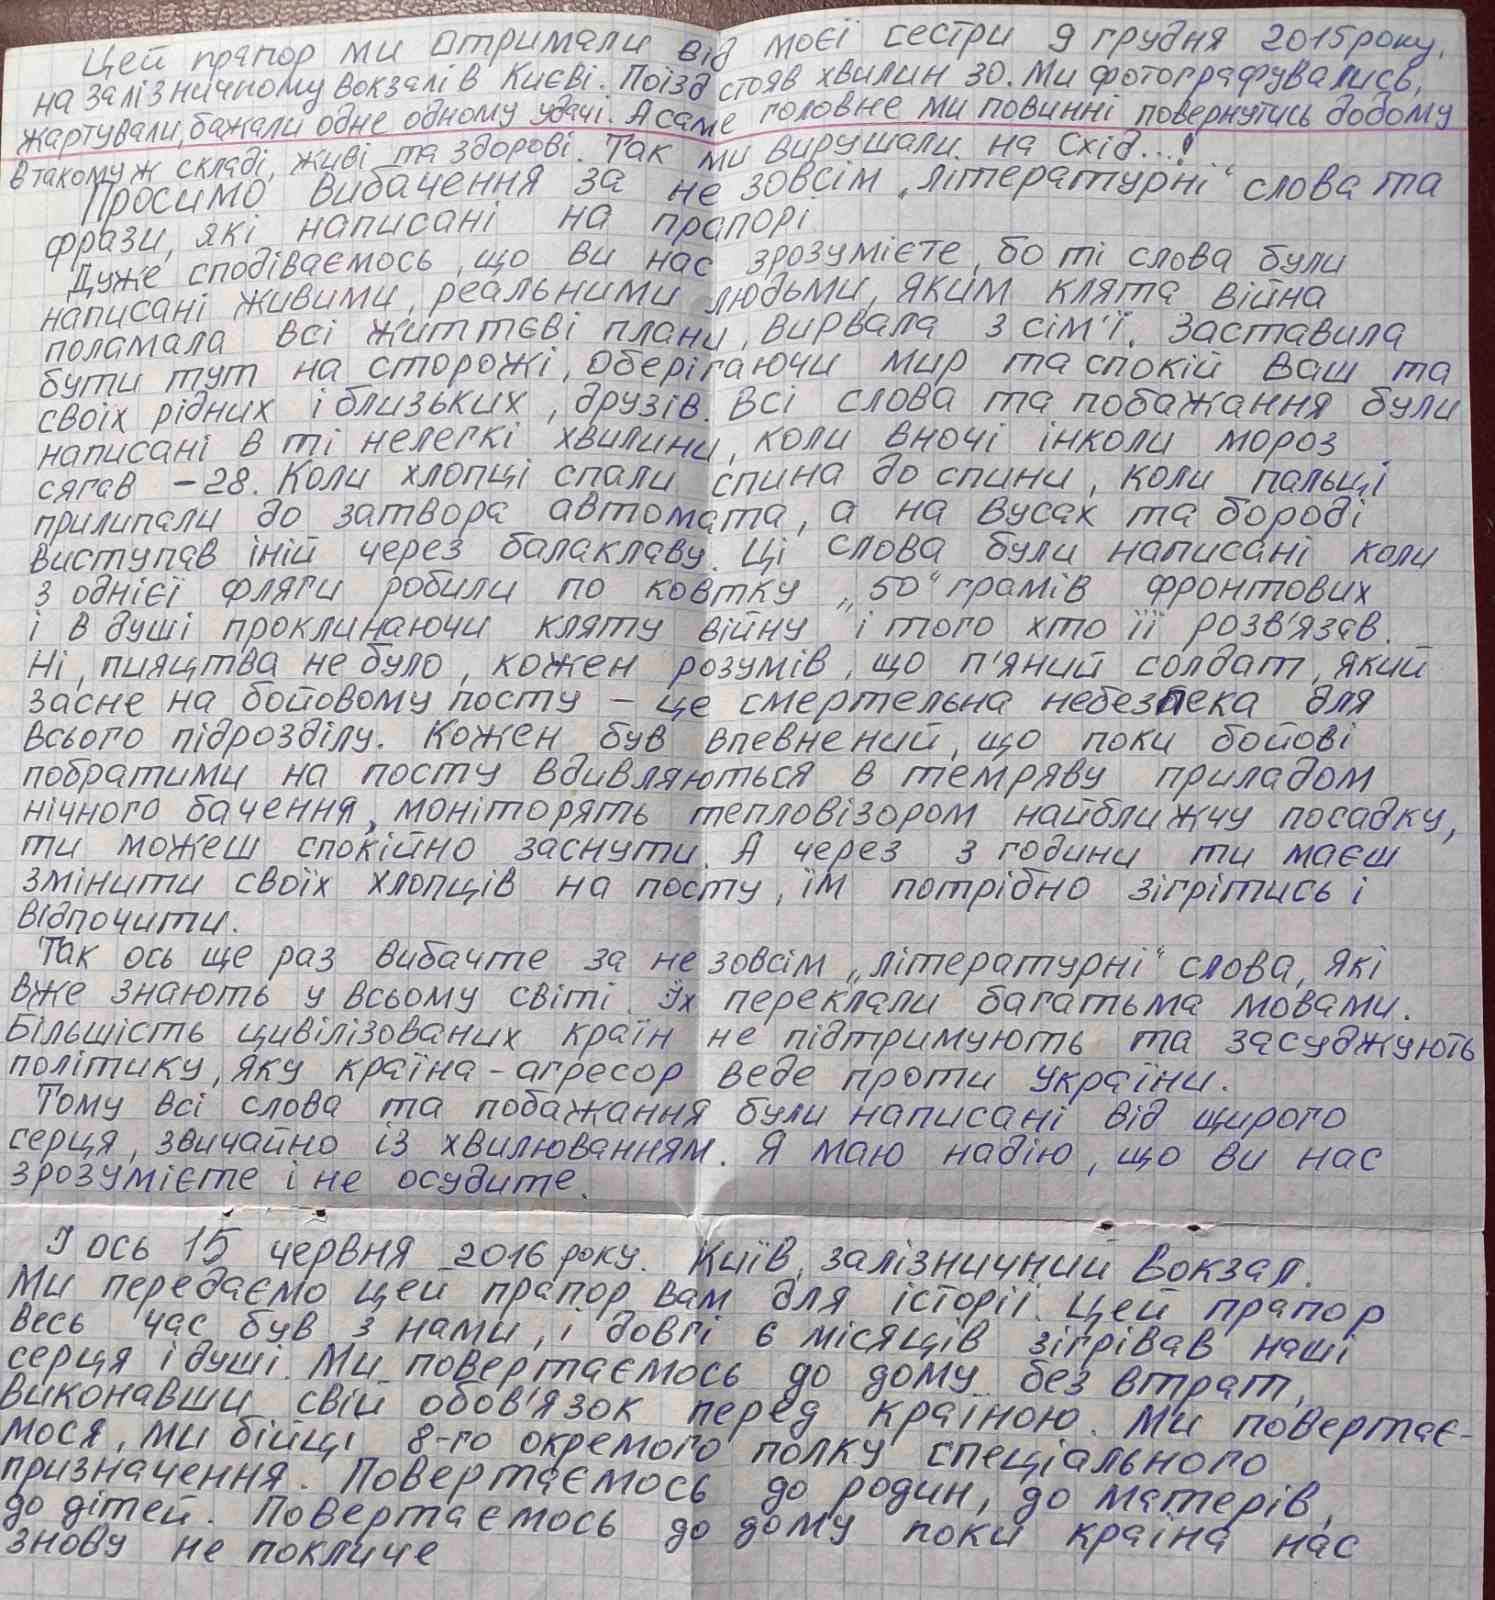 Цей прапор ми отримали від моєї сестри 9 грудня 2015 року,
на залізничному вокзалі в Києві. Поїзд стояв хвилин 30. Ми фотографувались,
жартували, бажали одне одному удачі. А саме головне ми повинні повернутись додому
в такому ж складі, живі та здорові. Так ми вирушали на Схід...!
Просимо вибачення за не зовсім „літературні“ слова та
фрази, які написані на прапорі.
Дуже сподіваємось, що ви нас зрозумієте, бо ті слова були
написані живими, реальними людьми, яким клята війна
поламала всі життєві плани, вирвала з сім'ї, заставила
бути тут на сторожі, оберігаючи мир та спокій Ваш та
своїх рідних і близьких, друзів. Всі слова та побажання були
написані в ті нелегкі хвилини, коли вночі інколи мороз
сягав -28. Коли хлопці спали спина до спини, коли пальці
прилипали до затвора автомата, а на вусах та бороді
виступав іній через балаклаву. Ці слова були написані коли
з однієї фляги робили по ковтку „50“ грамів фронтових
і в душі проклинаючи кляту війну і того хто її розв'язав.
Ні, пияцтва не було, кожен розумів, що п'яний солдат, який
засне на бойовому посту - це смертельна небезпека для
всього підрозділу. Кожен був впевнений, що поки бойові
побратими на посту вдивляються в темряву приладом
нічного бачення, моніторять тепловізором найближчу посадку,
ти можеш спокійно заснути. А через 3 години ти маєш
змінити своїх хлопців на посту, їм потрібно зігрітись і
відпочити.
Так ось ще раз вибачте за не зовсім „літературні“ слова, які
вже знають у всьому світі. Їх переклали багатьма мовами.
Більшість цивілізованих країн не підтримують та засуджують
політику, яку країна-агресор веде проти України.
Тому всі слова та побажання були написані від щирого
серця, звичайно із хвилюванням. Я маю надію, що ви нас
зрозумієте і не осудите.
І ось 15 червня 2016 року. Київ, залізничний вокзал.
Ми передаємо цей прапор вам для історії. Цей прапор
весь час був з нами, і довгі 6 місяців зігрівав наші
серця і душі. Ми повертаємось до дому без втрат,
виконавши свій обов'язок перед країною. Ми повертає-
мося, ми бійці 8-го окремого полку спеціального
призначення. Повертаємось до родин, до матерів,
до дітей. Повертаємось до дому поки країна нас
знову не покличе